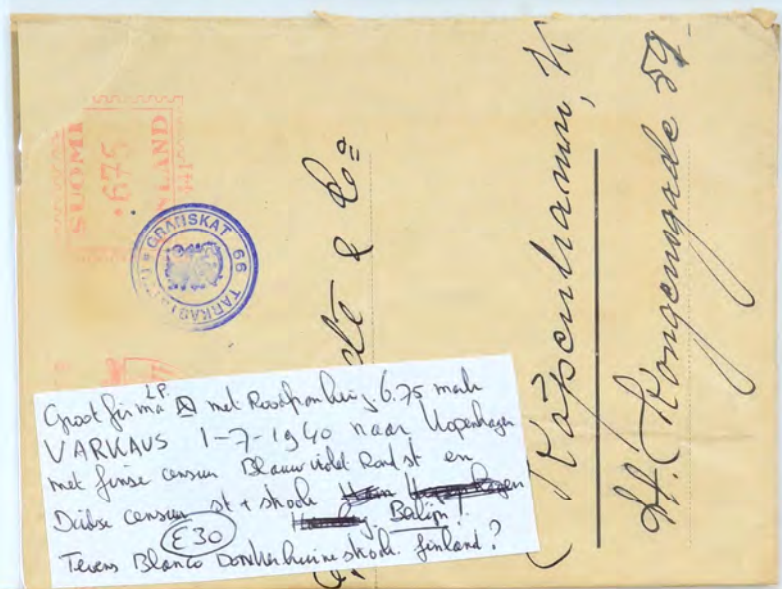 SUOMI
675
FINLAND
441
GRANSKAT 66 TARKASTETTU
& Co
Köpenhamn, K
St. Kongensgade 59
Groot firma LP. met Roodfrankering. 6.75 mark
VARKAUS 1-7-1940 naar Kopenhagen
met finse censuur Blauwviolet Rond st en
Duitse censuur st + strook
Berlijn!
E30
Tevens Blanco Donkerbruine strook. finland?